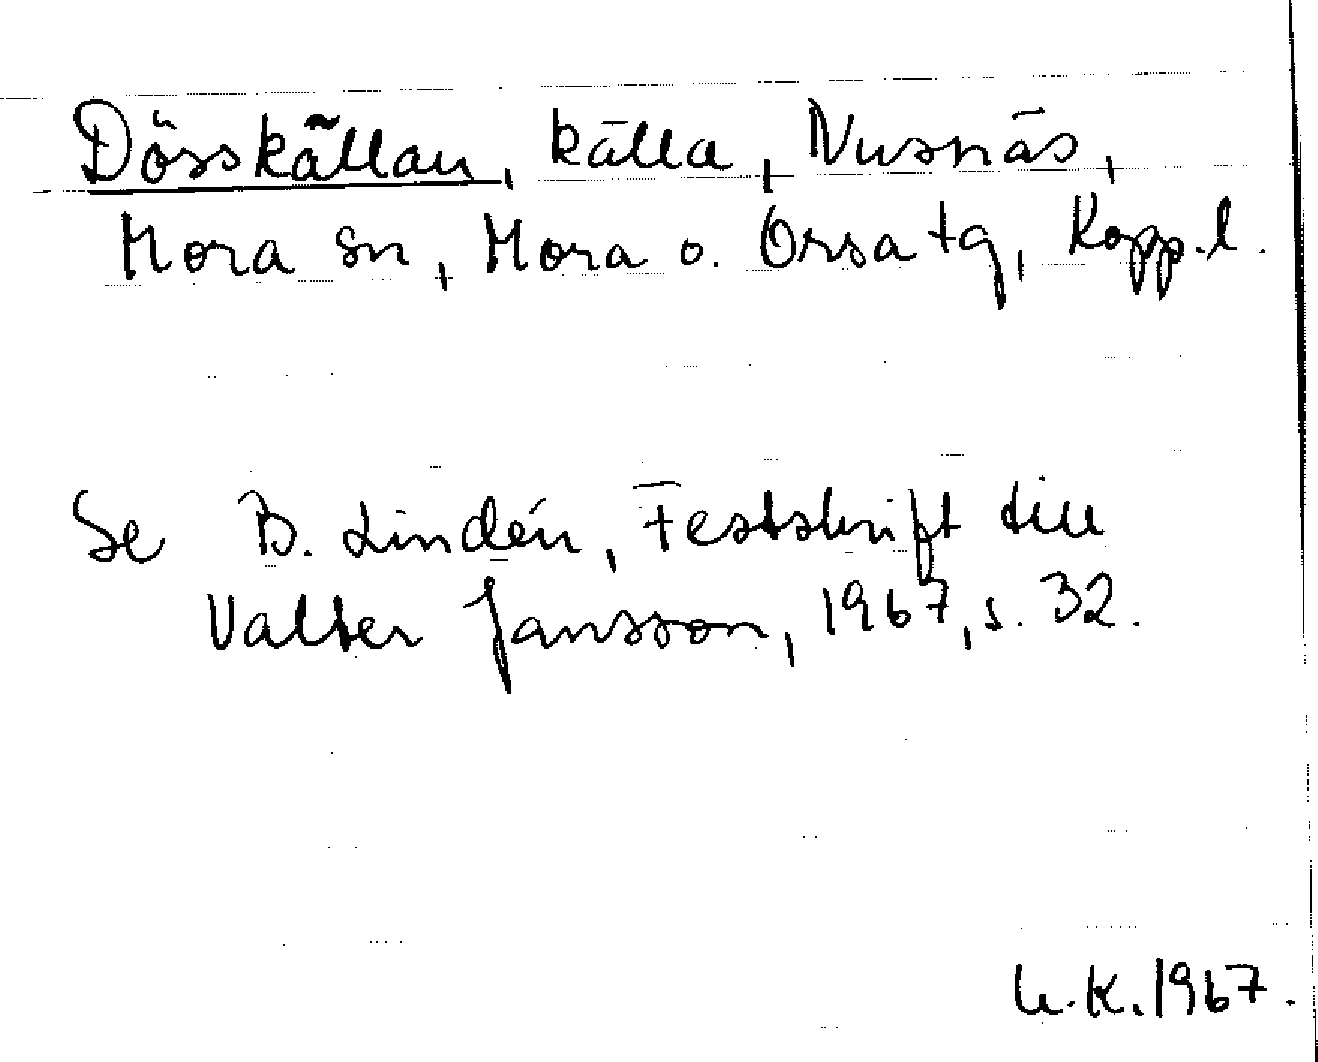 Dösskällan, källa, Nusnäs,
Mora sn, Mora o. Orsa tg, Kopp. l.
Se B. Lindén, Festskrift till
Valter Jansson, 1967, s. 32.
L.K. 1967.